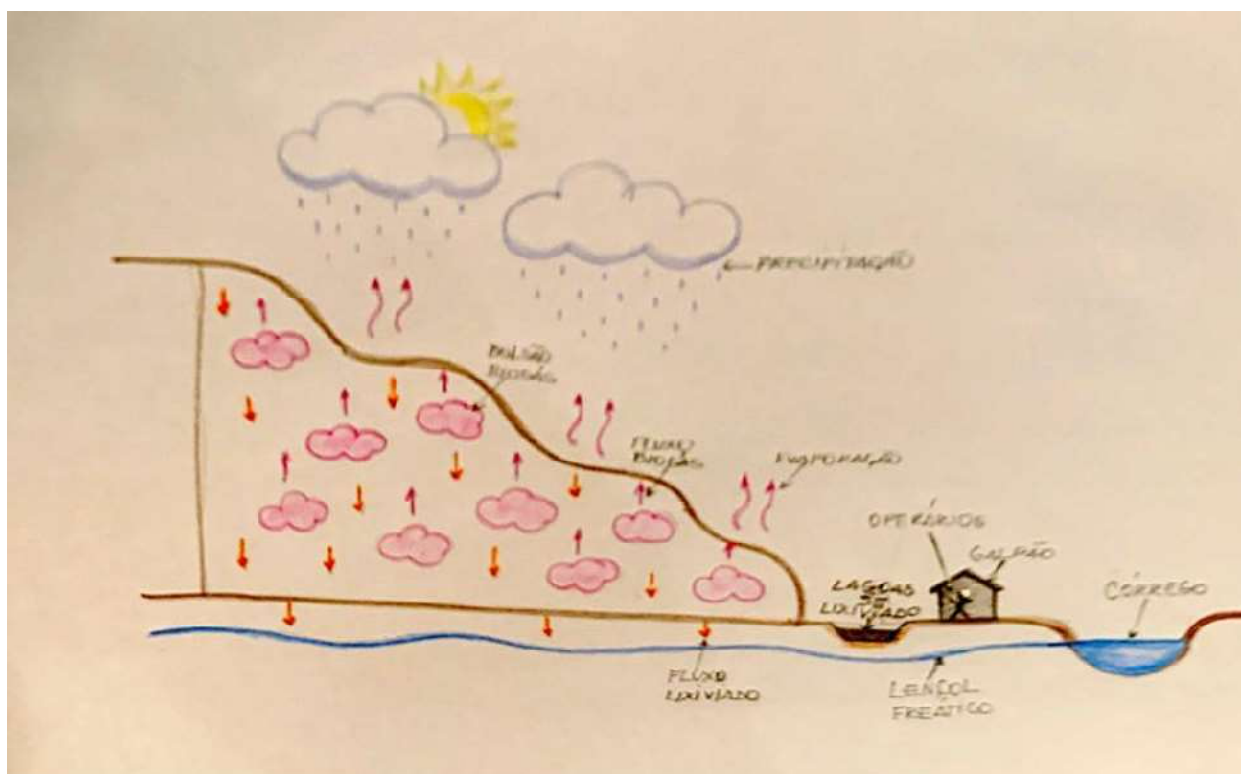 PRECIPITAÇÃO
BOLSÃO
BIOGÁS
FLUXO
BIOGÁS
EVAPORAÇÃO
OPERÁRIOS
GALPÃO
LAGOAS
DE
LIXIVIADO
CÓRREGO
FLUXO
LIXIVIADO
LENÇOL
FREÁTICO